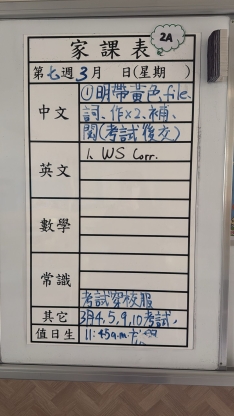 2A
家課表
第七週3月 日(星期 )
中文
①明帶黃色file、
詞、作x2、補、
閱(考試後交)
英文
1. WS Corr.
數學
常識
考試穿校服
其它
3月4,5,9,10考試,
值日生
11:45a.m.